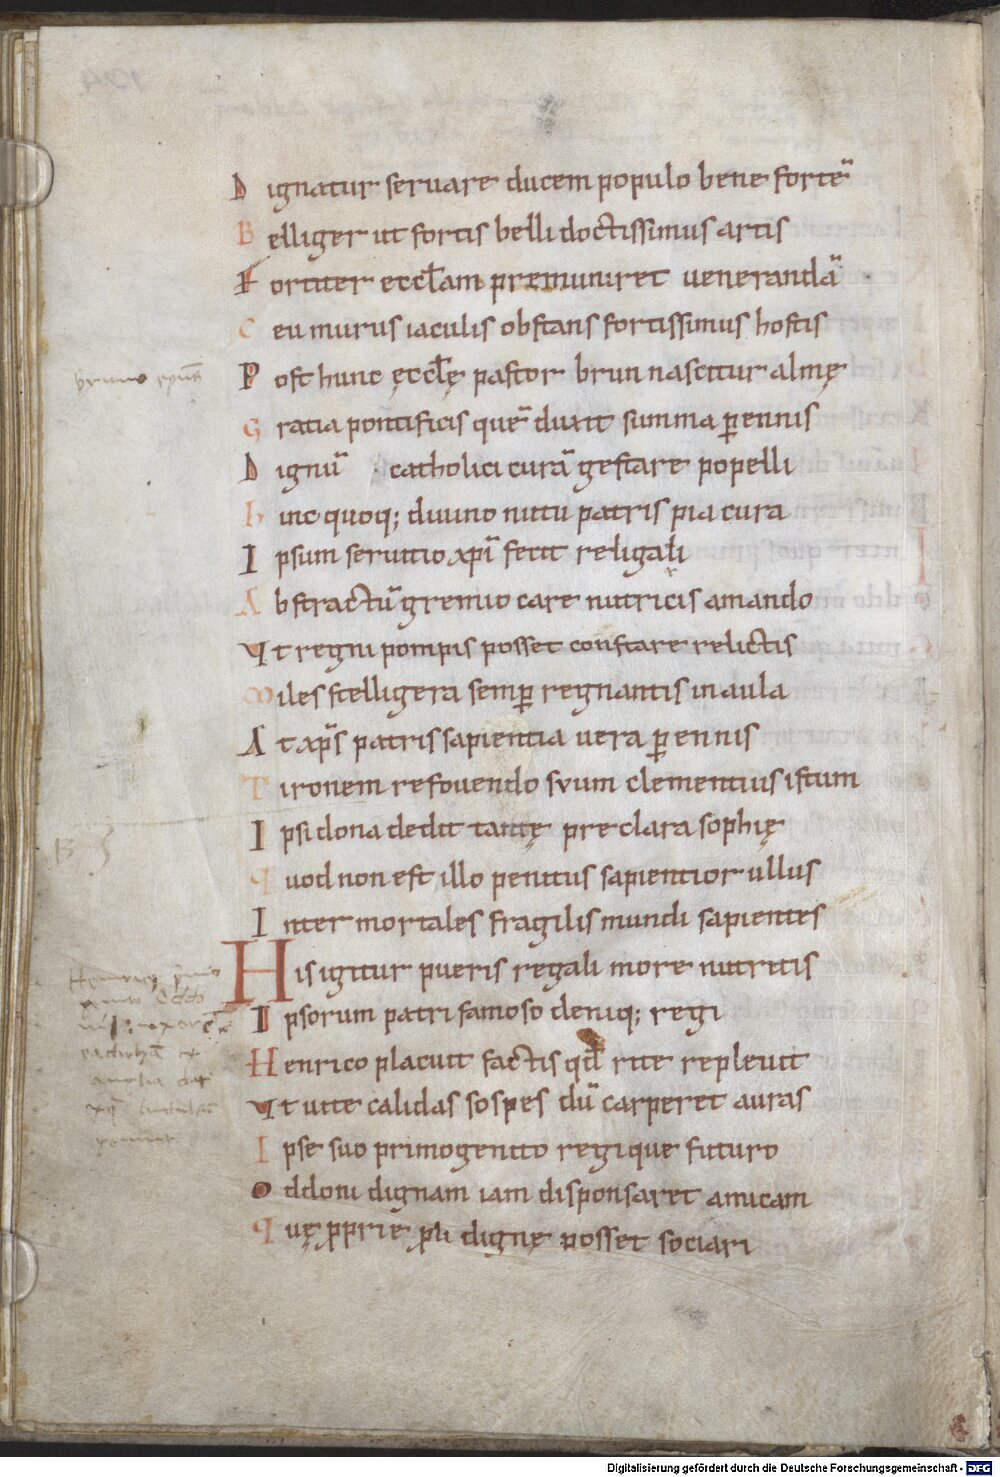 Dignatur seruare ducem populo bene fortē
Belliger ut fortis belli doctissimus artis
Fortiter eccłam premuniret uenerandā
Ceu murus iaculis obstans fortissimus hostis
Bruno ep̄us
Post hunc ęccłę pastor brun nascitur almę
Gratia pontificis quē duxit summa ꝑennis
Dignū catholici curā gestare popelli
hinc quoq; diuino nutu patris pia cura
Ipsum seruitio xp̄i fecit religali
Abstractū gremio care nutricis amando
Vt regni pompis posset constare relictis
Miles stelligera semꝑ regnantis in aula
At ap̄s patris sapientia uera ꝑennis
Tironem refouendo suum clementius istum
Ipsi dona dedit tantę preclara sophię
Quod non est illo penitus sapientior ullus
Inter mortales fragilis mundi sapientes
His igitur pueris regali more nutritis
Ipsorum patri famoso deniq; regi
Henrico placuit factis qd̄ rite repleuit
Vt uite calidas sospes dū carperet auras
Ipse suo primogenito regique futuro
Oddoni dignam iam disponsaret amicam
Quę ꝓprie ꝓli dignę posset sociari
Digitalisierung gefördert durch die Deutsche Forschungsgemeinschaft - DFG